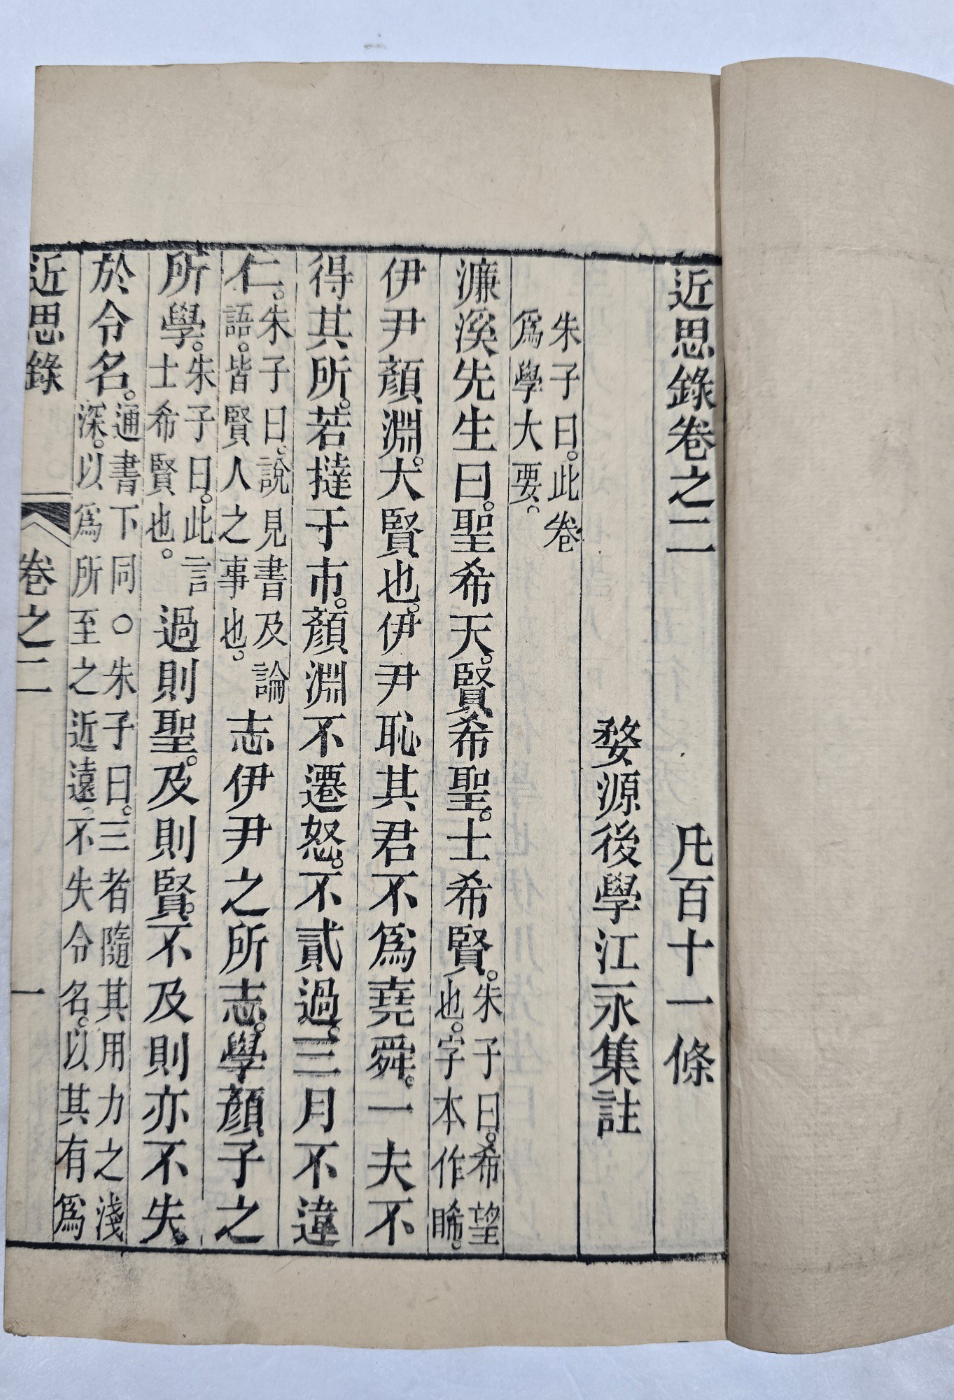 近思錄卷之二　凡百十一條
婺源後學江永集註
朱子曰。此卷
為學大要。
濂溪先生曰。聖希天。賢希聖。士希賢。朱子曰。希望也。字本作睎。
伊尹顏淵。大賢也。伊尹恥其君不為堯舜。一夫不
得其所。若撻于市。顏淵不遷怒。不貳過。三月不違
仁。朱子曰。說見書及論語。皆賢人之事也。志伊尹之所志。學顏子之
所學。朱子曰。此言士希賢也。過則聖。及則賢。不及則亦不失。
於令名。通書下同○朱子曰。三者隨其用力之淺深。以為所至之近遠。不失令名。以其有為
近思錄　卷之二　一